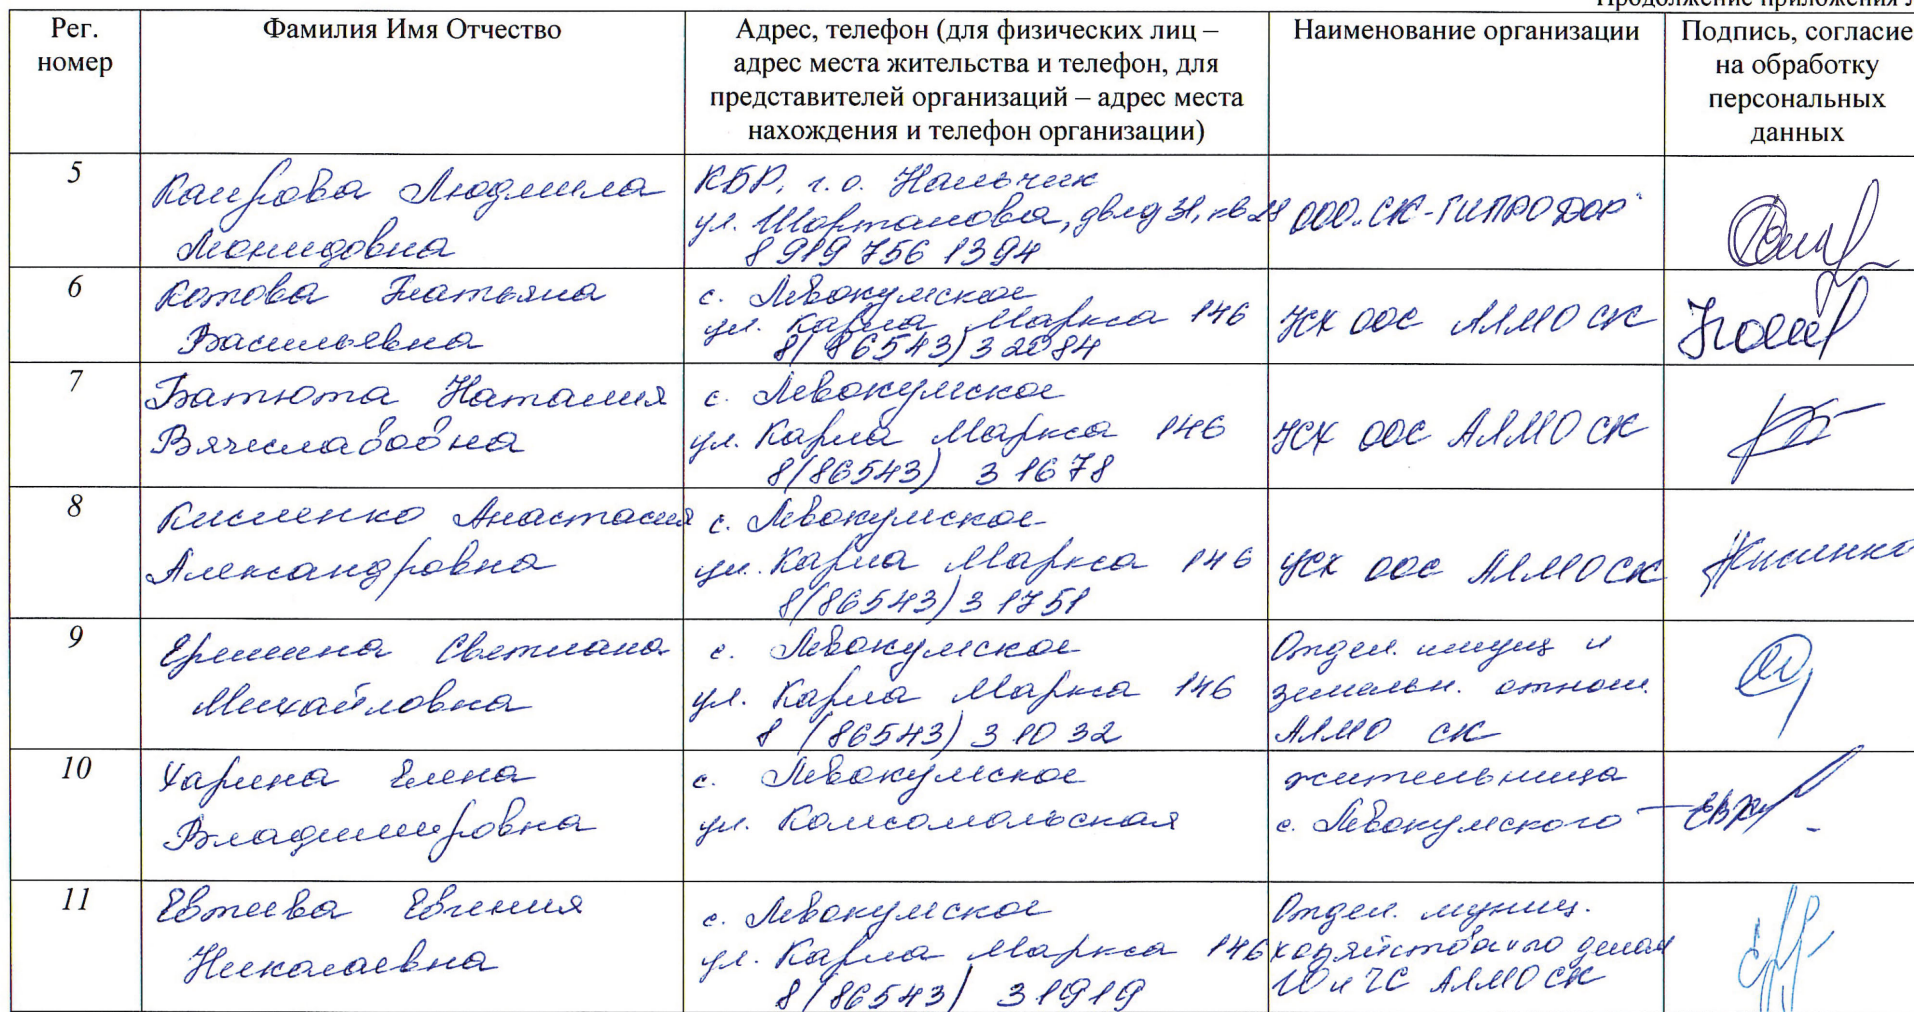 Продолжение приложения
Рег. номер
Фамилия Имя Отчество
Адрес, телефон (для физических лиц –
адрес места жительства и телефон, для
представителей организаций – адрес места
нахождения и телефон организации)
Наименование организации
Подпись, согласие
на обработку
персональных
данных
5
Каирова Людмила
КБР, г.о. Нальчик
ул. Шортанова, двлд 31, кв 28
8 919 756 1394
ООО „СК-ГИПРОДОР"
6
Котова Татьяна
Васильевна
с. Левокумское
ул. Карла Маркса 146
8(86543)3 2084
УСХ ООС АЛМО СК
7
Батюта Наталия
Вячеславовна
с. Левокумское
ул. Карла Маркса 146
8(86543) 3 1678
УСХ ООС АЛМО СК
8
Кисленко Анастасия
Александровна
с. Левокумское
ул. Карла Маркса 146
8(86543)3 1751
УСХ ООС АЛМО СК
9
Светлана
Михайловна
с. Левокумское
ул. Карла Маркса 146
8 (86543) 3 10 32
Отдел. имущ и
земельн. отнош.
АЛМО СК
10
Харина Елена
Владимировна
с. Левокумское
ул. Комсомольская
жительница
с. Левокумского
11
Евтеева Евгения
Николаевна
с. Левокумское
ул. Карла Маркса 146
8(86543) 31919
Отдел. муниц.
хозяйства и по делам
ГО и ЧС АЛМО СК